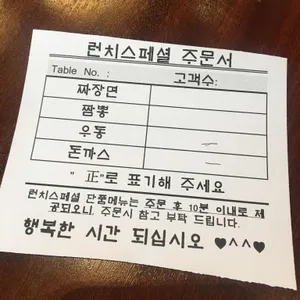 런치스페셜 주문서
Table No. : 고객수:
짜장면
짬뽕
우동
돈까스
" 正"로 표기해 주세요
런치스페셜 단품메뉴는 주문 후 10분 이내로 제
공되오니, 주문시 참고 부탁 드립니다.
행복한 시간 되십시오 ♥^^♥